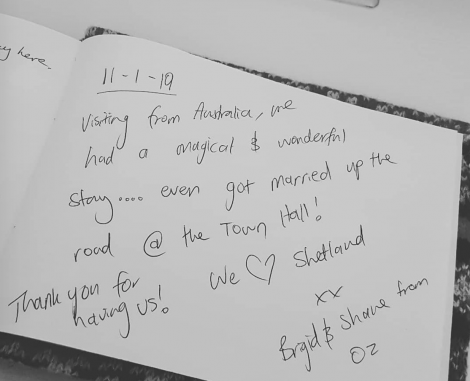 ey here.
11-1-19
Visiting from Australia, we
had a magical & wonderful
stay.... even got married up the
road @ the Town Hall!
We ♡ Shetland
Thank you for
having us!
xx
Brgid & Shane from
OZ